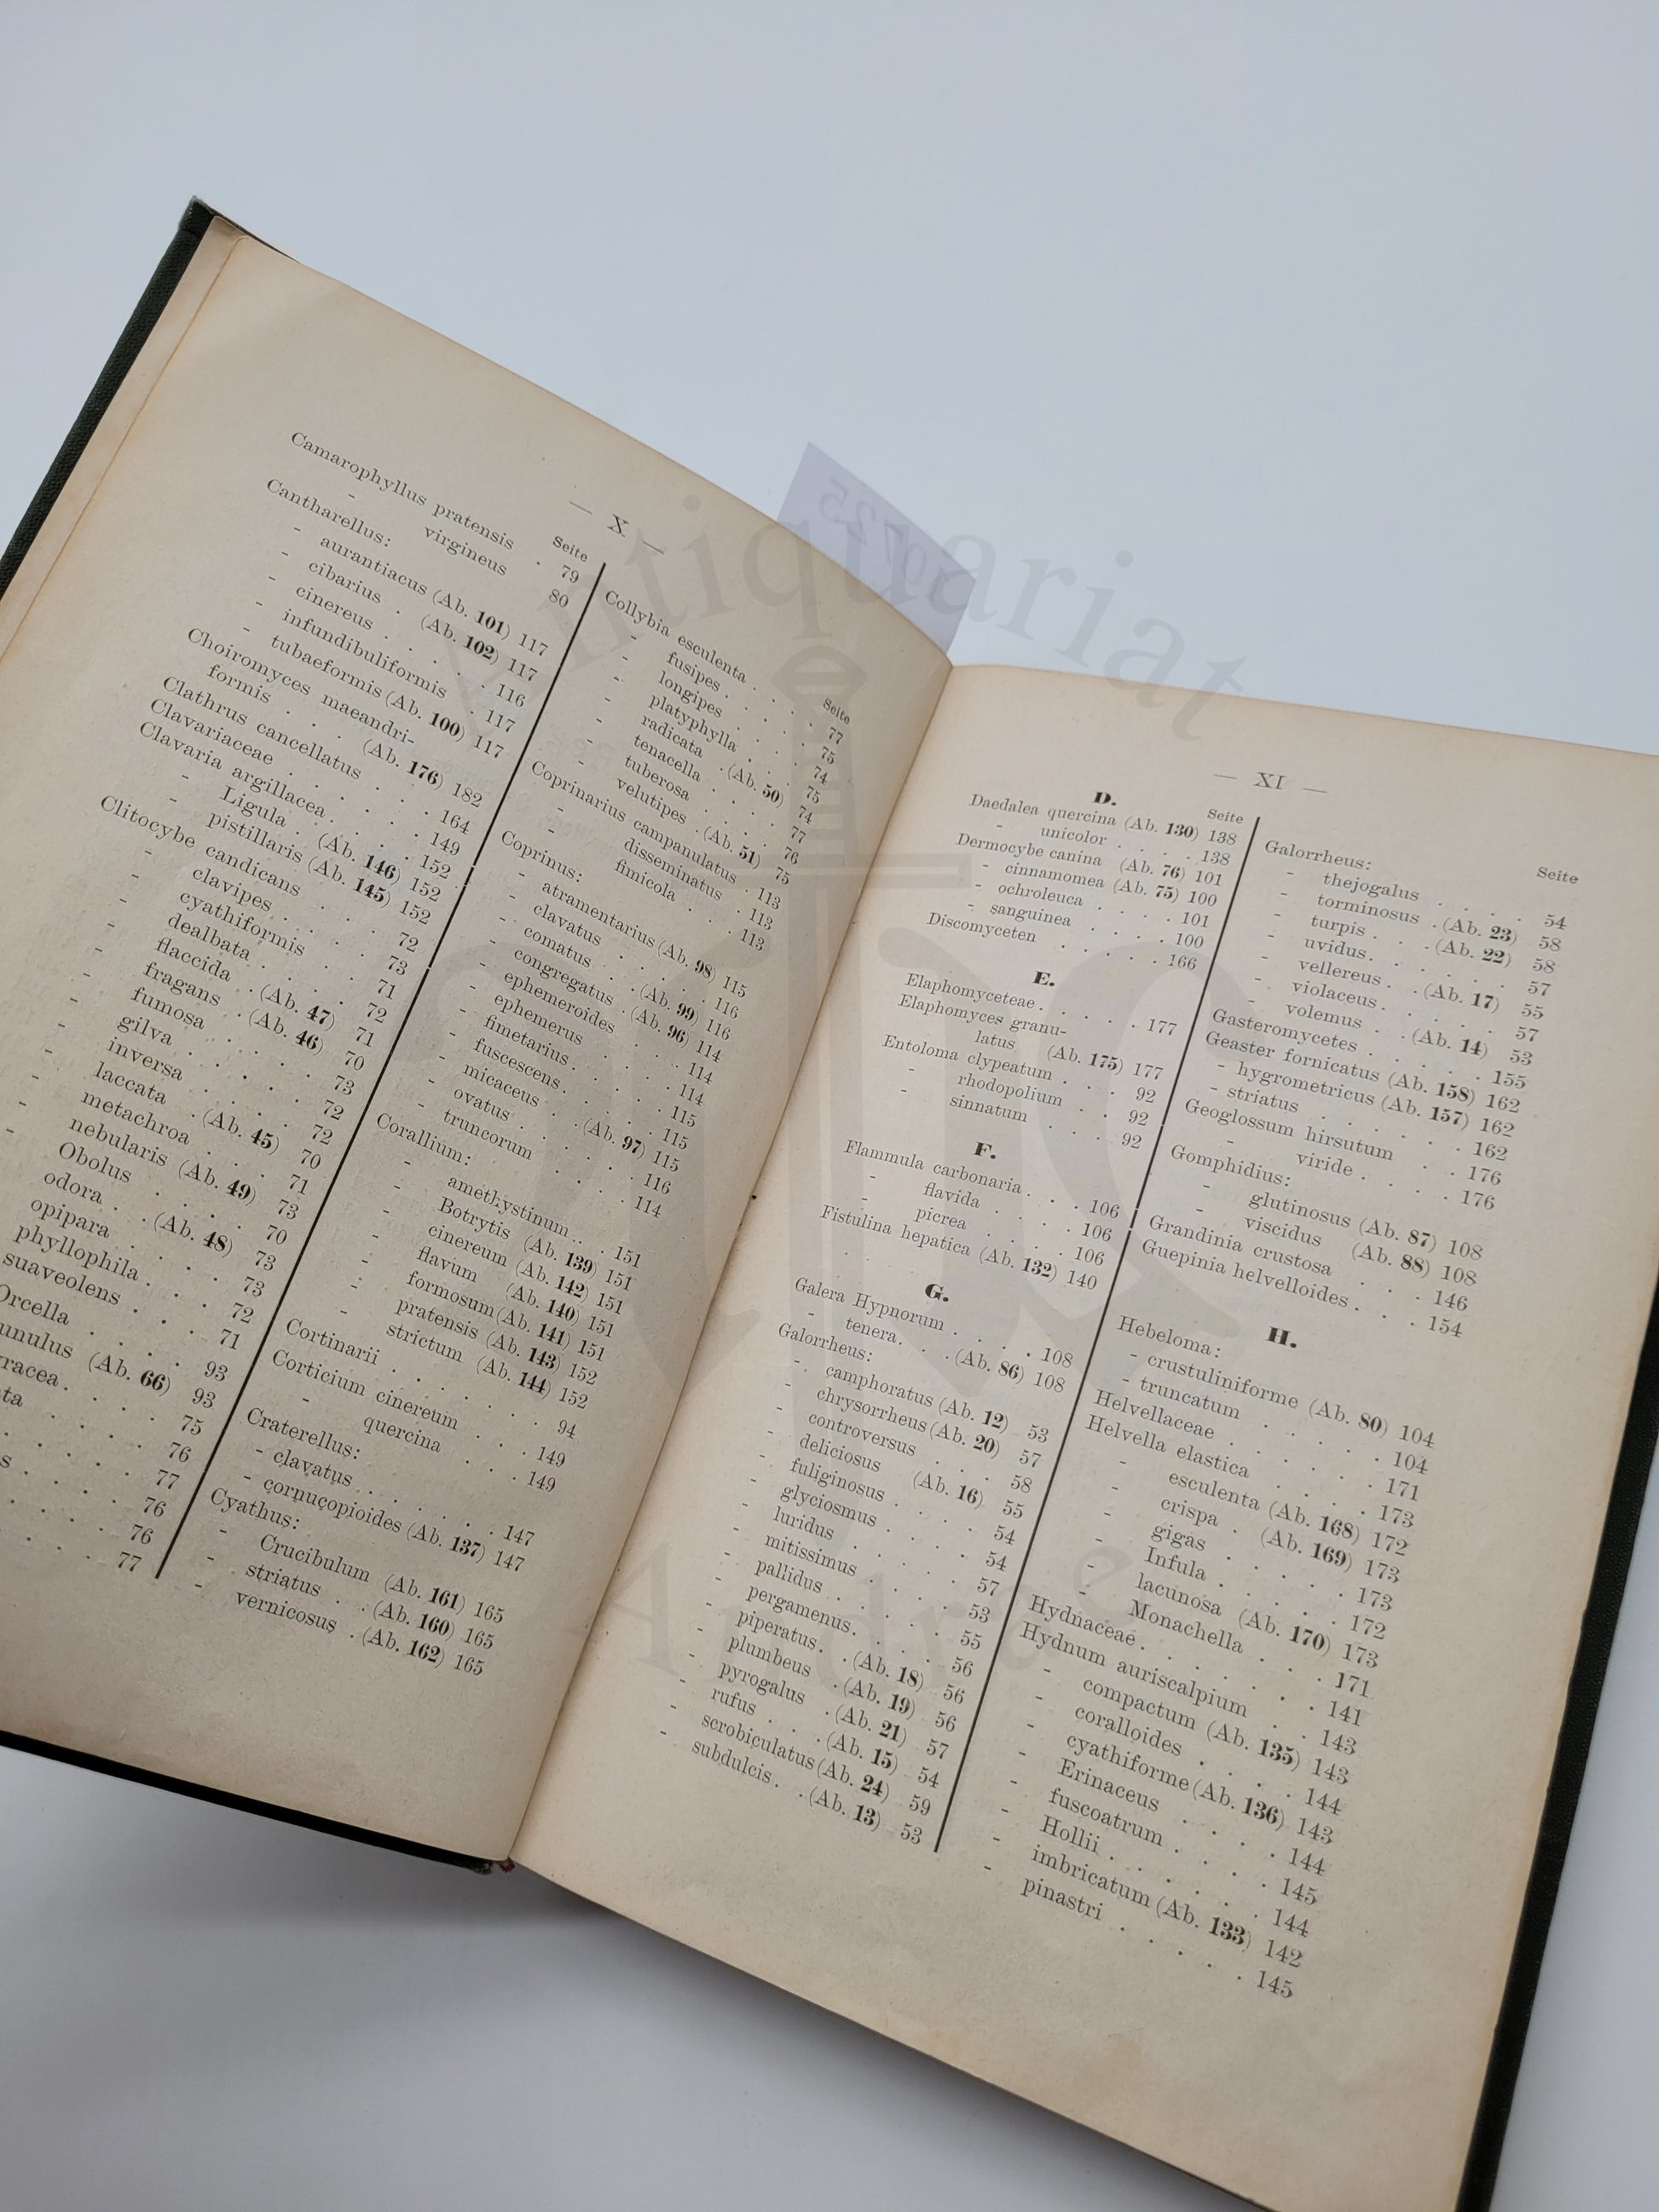 — X. —
Seite
Camarophyllus pratensis . 79
- virgineus 80
Cantharellus:
- aurantiacus (Ab. 101) 117
- cibarius . (Ab. 102) 117
- cinereus . . . . . 116
- infundibuliformis . 117
- tubaeformis (Ab. 100) 117
Choiromyces maeandri-
formis . . . (Ab. 176) 182
Clathrus cancellatus . . 164
Clavariaceae . . . . . 149
Clavaria argillacea . . . 152
- Ligula . (Ab. 146) 152
- pistillaris (Ab. 145) 152
Clitocybe candicans . . 72
- clavipes . . . . 73
- cyathiformis . . 71
- dealbata . . . . 72
- flaccida . (Ab. 47) 71
- fragans . (Ab. 46) 70
- fumosa . . . . 73
- gilva . . . . . 72
- inversa . . . . 72
- laccata . (Ab. 45) 70
- metachroa . . . 71
- nebularis (Ab. 49) 73
- Obolus . . . . 70
odora . . (Ab. 48) 73
opipara . . . . 73
phyllophila . . . 72
suaveolens . . . 71
Orcella . . . . 93
unulus (Ab. 66) 93
racea . . . . 75
ta . . . . . 76
77
s . . . . . 76
76
77
Seite
Collybia esculenta . . . 77
- fusipes . . . . 75
- longipes . . . . 74
- platyphylla . . . 75
- radicata . (Ab. 50) 74
- tenacella . . . . 77
- tuberosa . . . . 76
- velutipes . (Ab. 51) 75
Coprinarius campanulatus . 113
- disseminatus . 113
- fimicola . . . 113
Coprinus:
- atramentarius (Ab. 98) 115
- clavatus . . . . . 116
- comatus . . (Ab. 99) 116
- congregatus . (Ab. 96) 114
- ephemeroides . . . 114
- ephemerus . . . . 114
- fimetarius . . . . . 115
- fuscescens . . . . . 115
- micaceus . . (Ab. 97) 115
- ovatus . . . . . . 116
- truncorum . . . . 114
Corallium:
- amethystinum . . . 151
- Botrytis (Ab. 139) 151
- cinereum (Ab. 142) 151
- flavum (Ab. 140) 151
- formosum (Ab. 141) 151
- pratensis (Ab. 143) 152
- strictum (Ab. 144) 152
Cortinarii . . . . . . 94
Corticium cinereum . . . 149
- quercina . . . 149
Craterellus:
- clavatus . . . . . . 147
- cornucopioides (Ab. 137) 147
Cyathus:
- Crucibulum (Ab. 161) 165
- striatus . . (Ab. 160) 165
- vernicosus . (Ab. 162) 165
— XI —
D.
Seite
Daedalea quercina (Ab. 130) 138
- unicolor . . . . 138
Dermocybe canina (Ab. 76) 101
- cinnamomea (Ab. 75) 100
- ochroleuca . . . . 101
- sanguinea . . . . 100
Discomyceten . . . . . 166
E.
Elaphomyceteae . . . . . 177
Elaphomyces granu-
latus (Ab. 175) 177
Entoloma clypeatum . . . 92
- rhodopolium . . 92
- sinnatum . . . 92
F.
Flammula carbonaria . . . 106
- flavida . . . . 106
- picrea . . . . 106
Fistulina hepatica (Ab. 132) 140
G.
Galera Hypnorum . . . . 108
- tenera . . . (Ab. 86) 108
Galorrheus:
- camphoratus (Ab. 12) 53
- chrysorrheus (Ab. 20) 57
- controversus . . . 58
- deliciosus (Ab. 16) 55
- fuliginosus . . . . 54
- glyciosmus . . . . 54
- luridus . . . . . 57
- mitissimus . . . . 53
- pallidus . . . . . 55
- pergamenus . . . . 56
- piperatus . . (Ab. 18) 56
- plumbeus . (Ab. 19) 56
- pyrogalus . (Ab. 21) 57
- rufus . . . (Ab. 15) 54
- scrobiculatus (Ab. 24) 59
- subdulcis . . (Ab. 13) 53
Seite
Galorrheus:
- thejogalus . . . . 54
- torminosus . (Ab. 23) 58
- turpis . . . (Ab. 22) 58
- uvidus . . . . . . 57
- vellereus . . (Ab. 17) 55
- violaceus . . . . . 57
- volemus . . (Ab. 14) 53
Gasteromycetes . . . . . 155
Geaster fornicatus (Ab. 158) 162
- hygrometricus (Ab. 157) 162
- striatus . . . . . 162
Geoglossum hirsutum . . 176
- viride . . . . 176
Gomphidius:
- glutinosus (Ab. 87) 108
- viscidus (Ab. 88) 108
Grandinia crustosa . . . 146
Guepinia helvelloides . . . 154
H.
Hebeloma:
- crustuliniforme (Ab. 80) 104
- truncatum . . . . . 104
Helvellaceae . . . . . . 171
Helvella elastica . . . . 173
- esculenta (Ab. 168) 172
- crispa . (Ab. 169) 173
- gigas . . . . . 173
- Infula . . . . . 172
- lacunosa (Ab. 170) 173
- Monachella . . . 171
Hydnaceae . . . . . . 141
Hydnum auriscalpium . . 143
- compactum (Ab. 135) 143
- coralloides . . . . 144
- cyathiforme (Ab. 136) 143
- Erinaceus . . . . 144
- fuscoatrum . . . . 145
- Hollii . . . . . . 144
- imbricatum (Ab. 133) 142
- pinastri . . . . . 145
Antiquariat